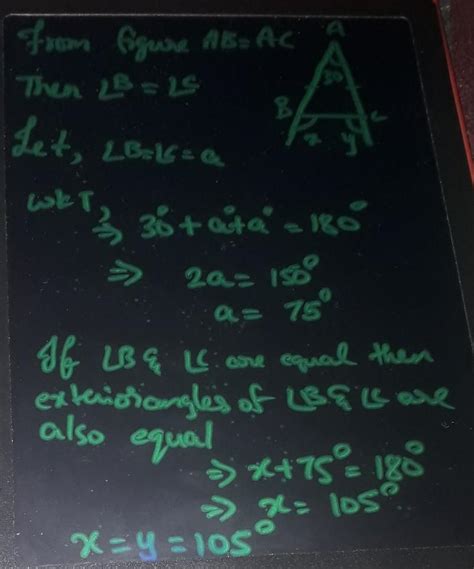 From figure AB=AC
Then ∠B = ∠C
Let, ∠B=∠C=a
A
30
B
C
x
y
WKT,
⇒ 30°+a°+a° = 180°
⇒ 2a = 150°
a = 75°
If ∠B & ∠C are equal then
exteriorangles of ∠B & ∠C are
also equal
⇒ x+75° = 180°
⇒ x = 105°
x = y = 105°